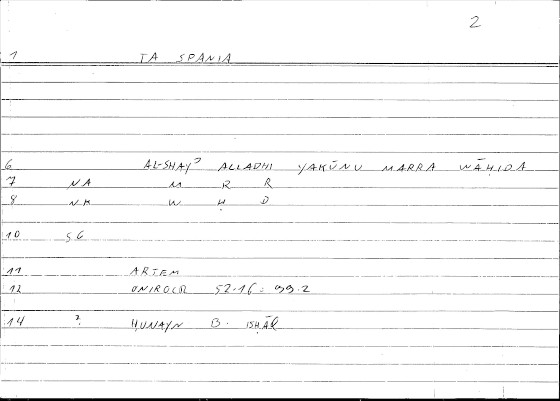 2
1 TA SPANIA
6 AL-SHAYʾ ALLADHI YAKŪNU MARRA WĀḤIDA
7 NA M R R
8 NK W Ḥ D
10 SG
11 ARTEM
12 ONIROCR 52.16 : 99.2
14 ? ḤUNAYN B. ISḤĀQ